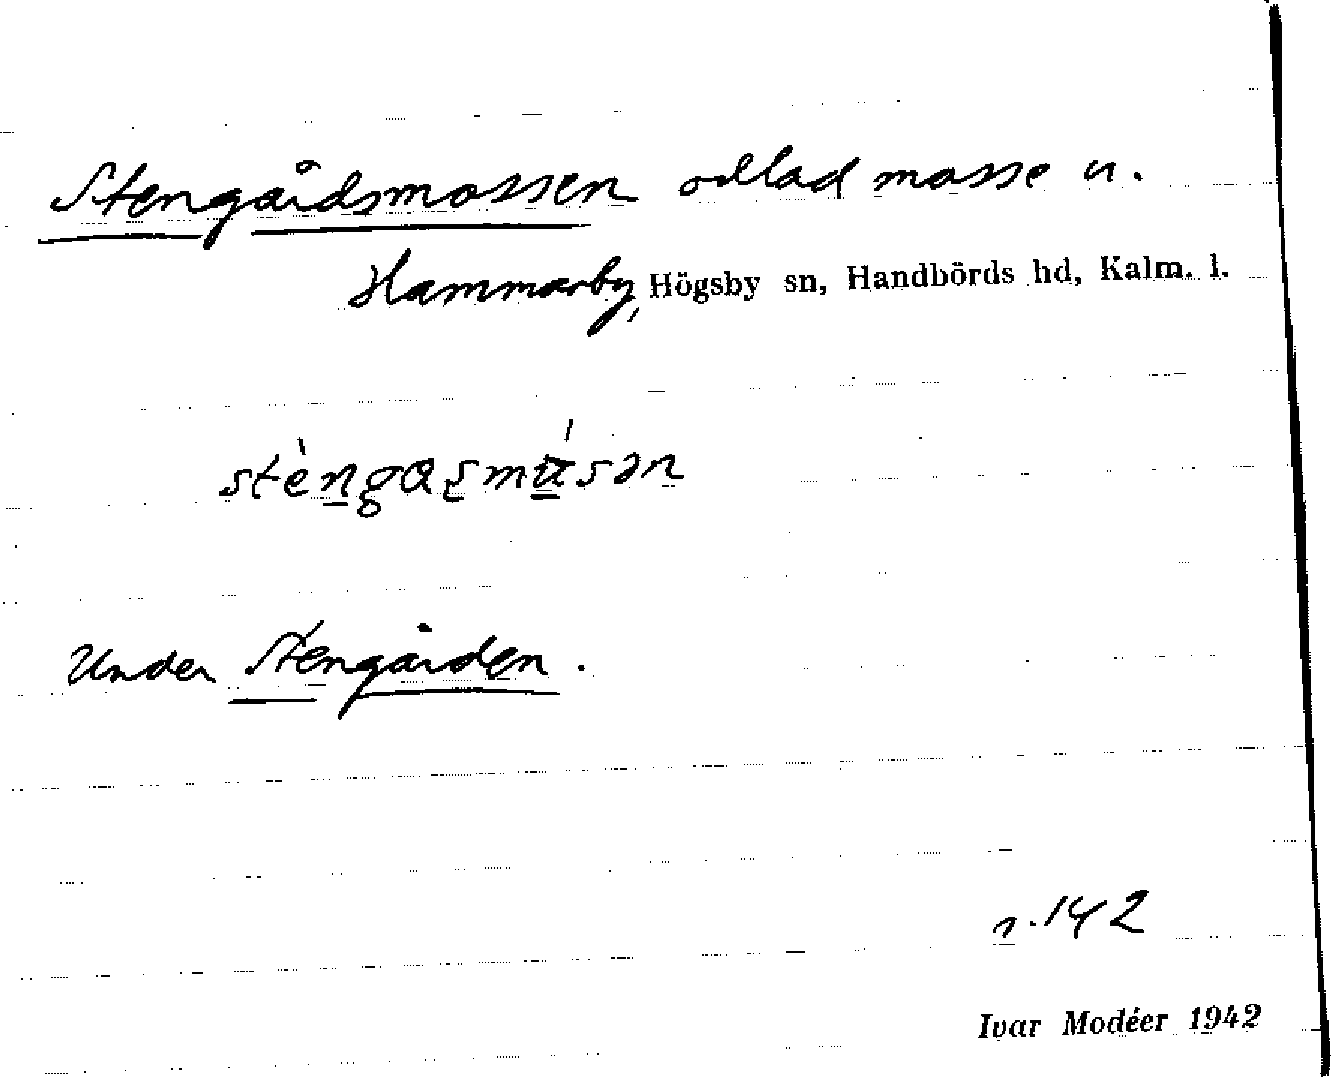 Stengårdsmossen odlad mosse u.
Hammarby, Högsby sn, Handbörds hd, Kalm. l.
stèngaʂmúsən
Under Stengården.
s. 142
Ivar Modéer 1942